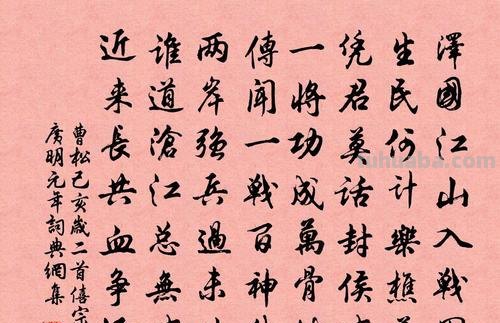 澤國江山入戰
生民何計樂樵
凭君莫話封侯
一将功成萬骨
傳聞一戰百神
两岸强兵過未
誰道滄江总無
近来長共血争
曹松己亥歲二首僖宗
廣明元年詞典網集
tuhuaba.com